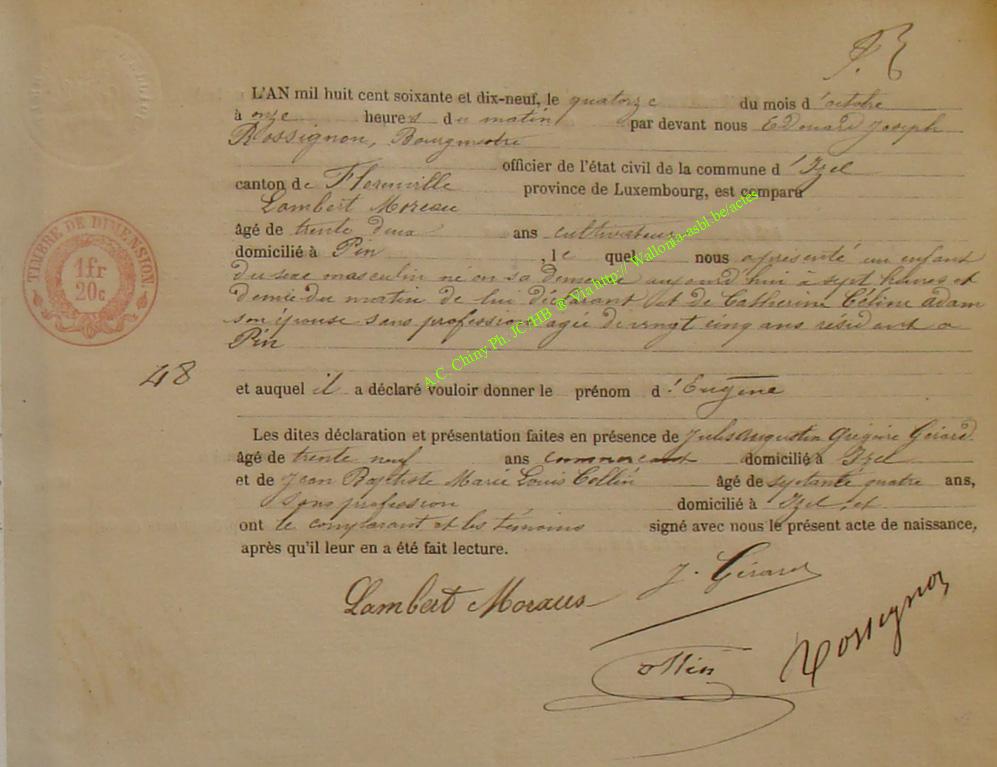 L'AN mil huit cent soixante et dix-neuf, le quatorze du mois d'octobre
à onze heures du matin par devant nous Edouard Joseph
Rossignon, Bourgmestre
officier de l'état civil de la commune d'Izel
canton de Florenville province de Luxembourg, est comparu
Lambert Moreau
âgé de trente deux ans cultivateur
domicilié à Pin, lequel nous a présenté un enfant
du sexe masculin né en sa demeure aujourd'hui à sept heures et
demie du matin de lui déclarant et de Catherine Céline Adam
son épouse sans profession agée de vingt cinq ans résidant a
Pin
TIMBRE DE DIMENSION
1fr
20c
48
et auquel il a déclaré vouloir donner le prénom d'Eugène
Les dites déclaration et présentation faites en présence de Jules Augustin Grégoire Gérard
âgé de trente neuf ans commercant domicilié à Izel
et de Jean Baptiste Marie Louis Collin âgé de septante quatre ans,
sans profession domicilié à Izel et
ont le comparant et les témoins signé avec nous le présent acte de naissance,
après qu'il leur en a été fait lecture.
J. Gérard
Lambert Moraus
Collin
Rossignon
A.C. Chiny Ph. JC/HB ® Via http:// Wallonia-asbl.be/actes